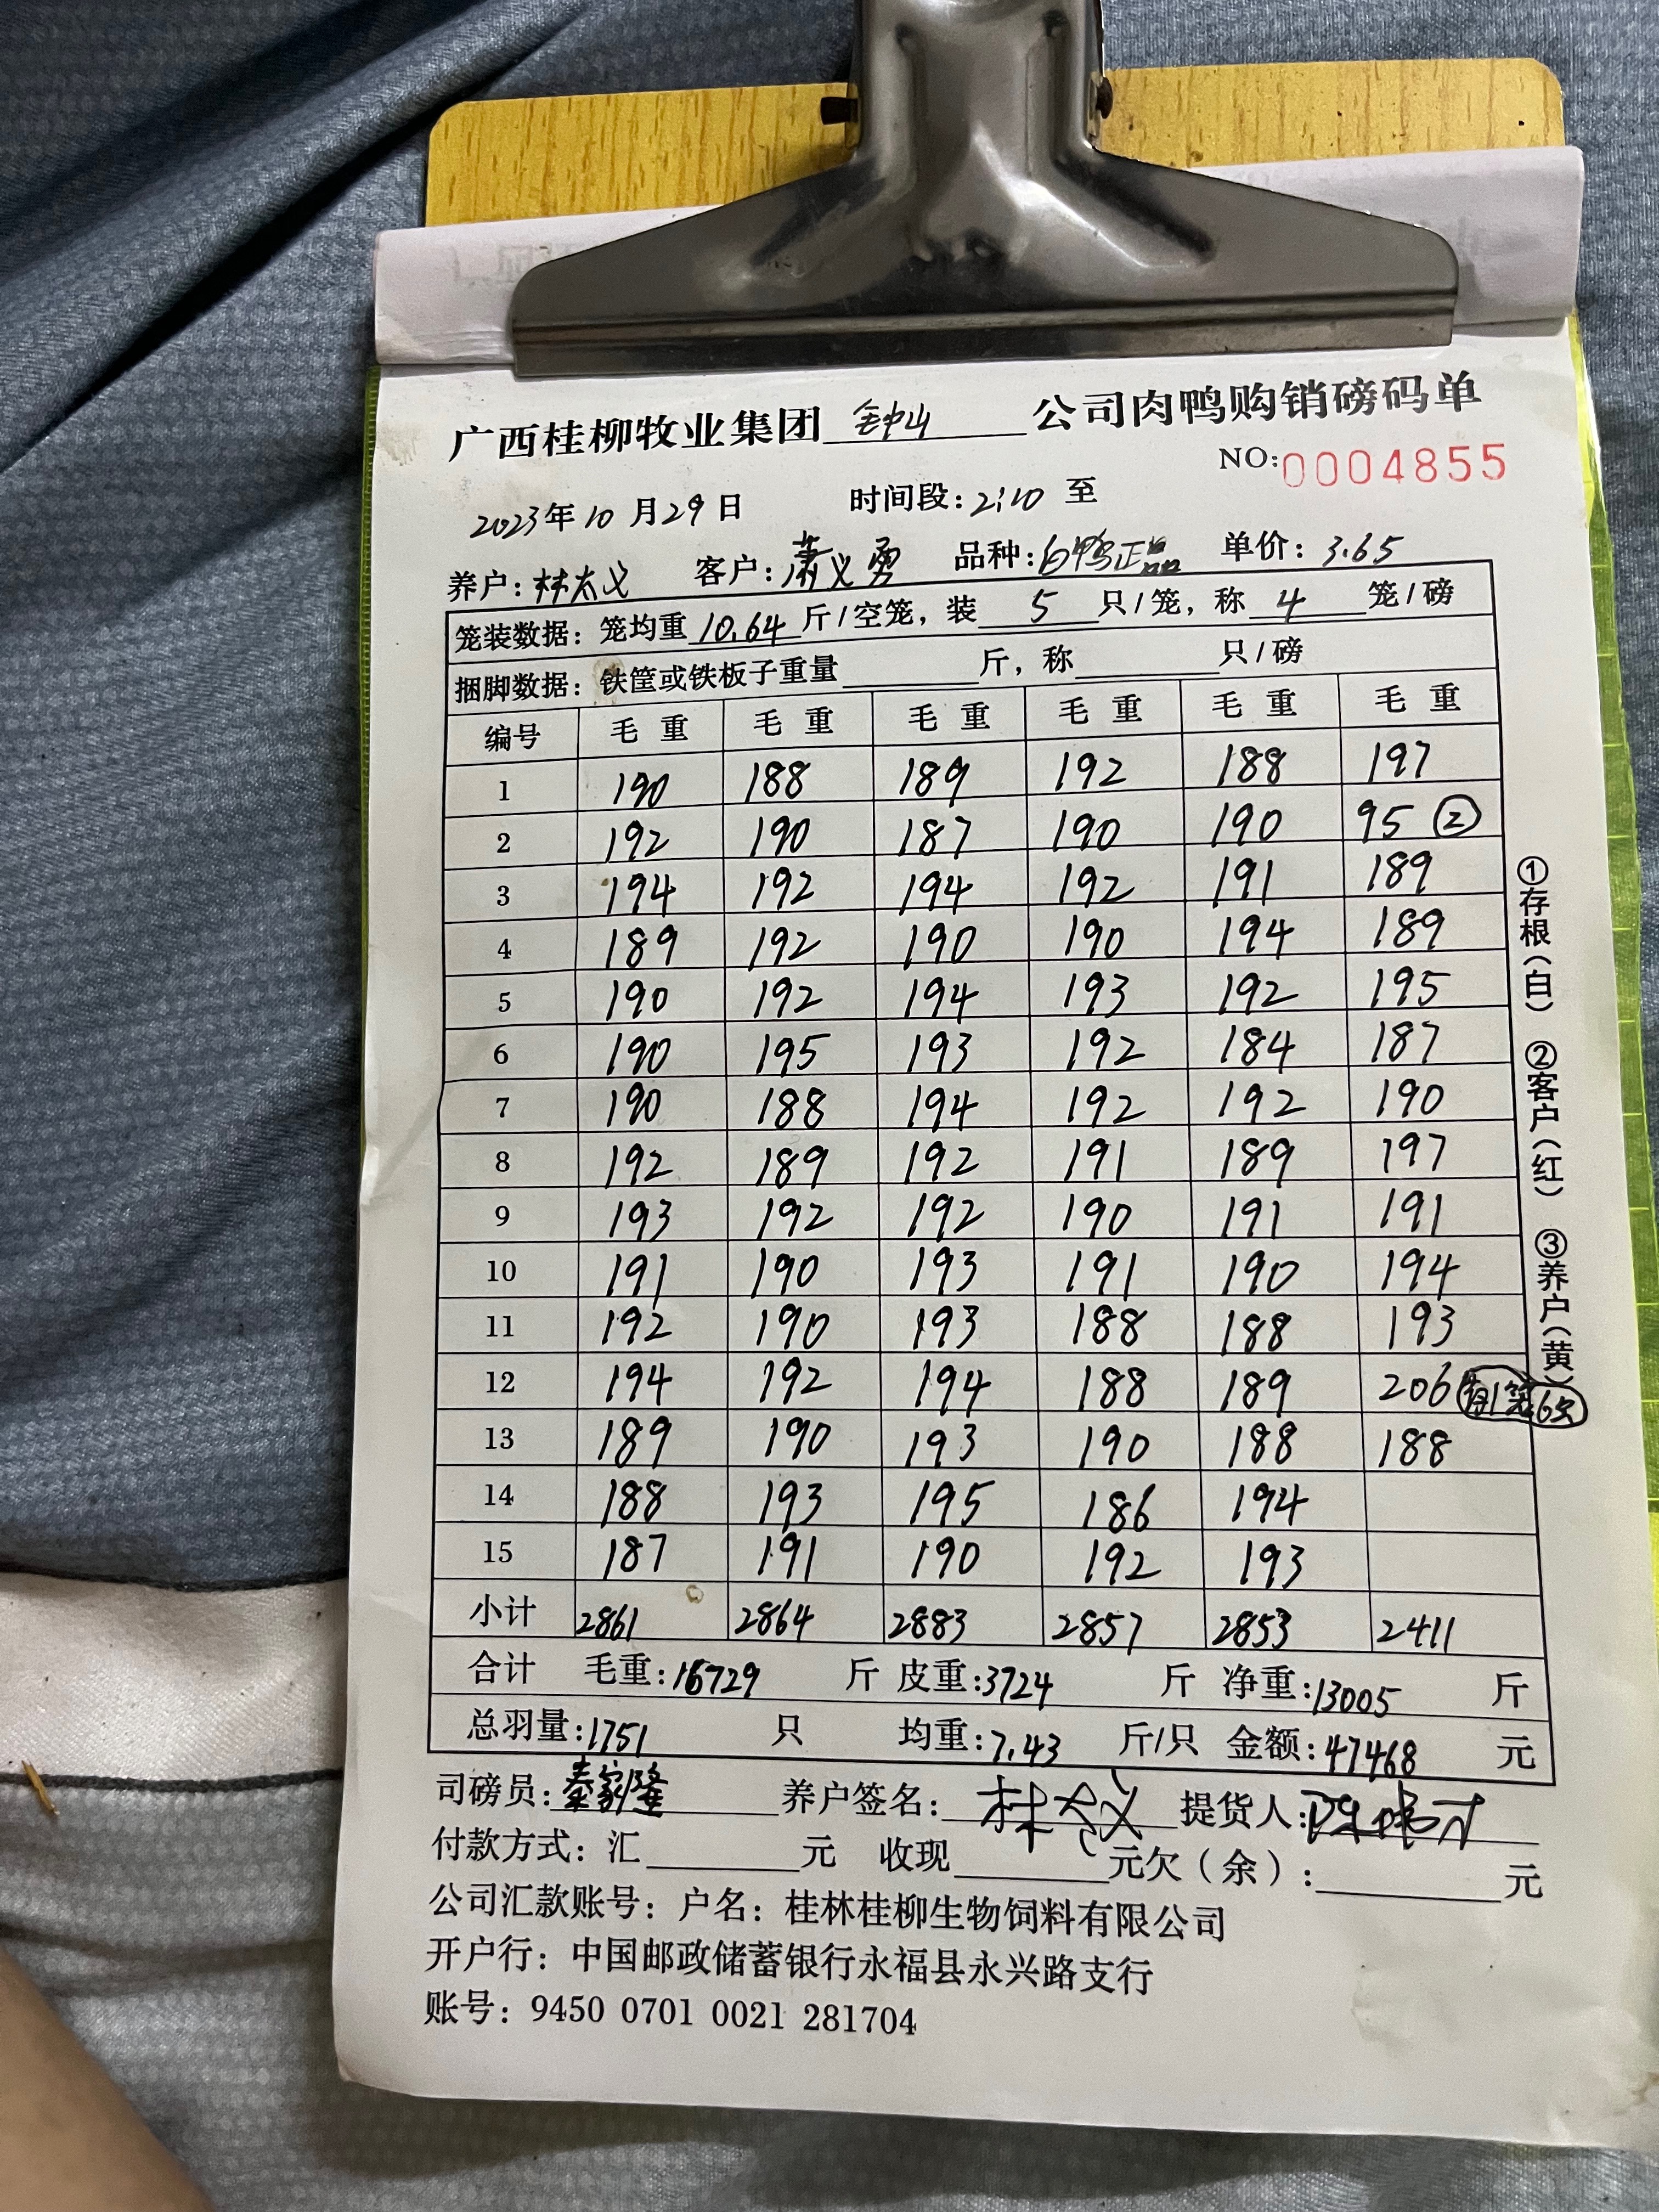 广西桂柳牧业集团 钟山 公司肉鸭购销磅码单
NO:0004855
2023年10月29日 时间段:2:10 至
养户:林太义 客户:萧义勇 品种:白鸭正品 单价:3.65
笼装数据:笼均重10.64斤/空笼,装 5 只/笼,称 4 笼/磅
捆脚数据:铁筐或铁板子重量 斤,称 只/磅
编号 毛重 毛重 毛重 毛重 毛重 毛重
1 190 188 189 192 188 197
2 192 190 187 190 190 95 ②
3 194 192 194 192 191 189
4 189 192 190 190 194 189
5 190 192 194 193 192 195
6 190 195 193 192 184 187
7 190 188 194 192 192 190
8 192 189 192 191 189 197
9 193 192 192 190 191 191
10 191 190 193 191 190 194
11 192 190 193 188 188 193
12 194 192 194 188 189 206 有1笼6只
13 189 190 193 190 188 188
14 188 193 195 186 194
15 187 191 190 192 193
小计 2861 2864 2883 2857 2853 2411
合计 毛重:16729 斤 皮重:3724 斤 净重:13005 斤
总羽量:1751 只 均重:7.43 斤/只 金额:47468 元
司磅员:秦家隆 养户签名:林太义 提货人:
付款方式:汇 元 收现 元欠(余): 元
公司汇款账号:户名:桂林桂柳生物饲料有限公司
开户行:中国邮政储蓄银行永福县永兴路支行
账号:9450 0701 0021 281704
①存根(白) ②客户(红) ③养户(黄)